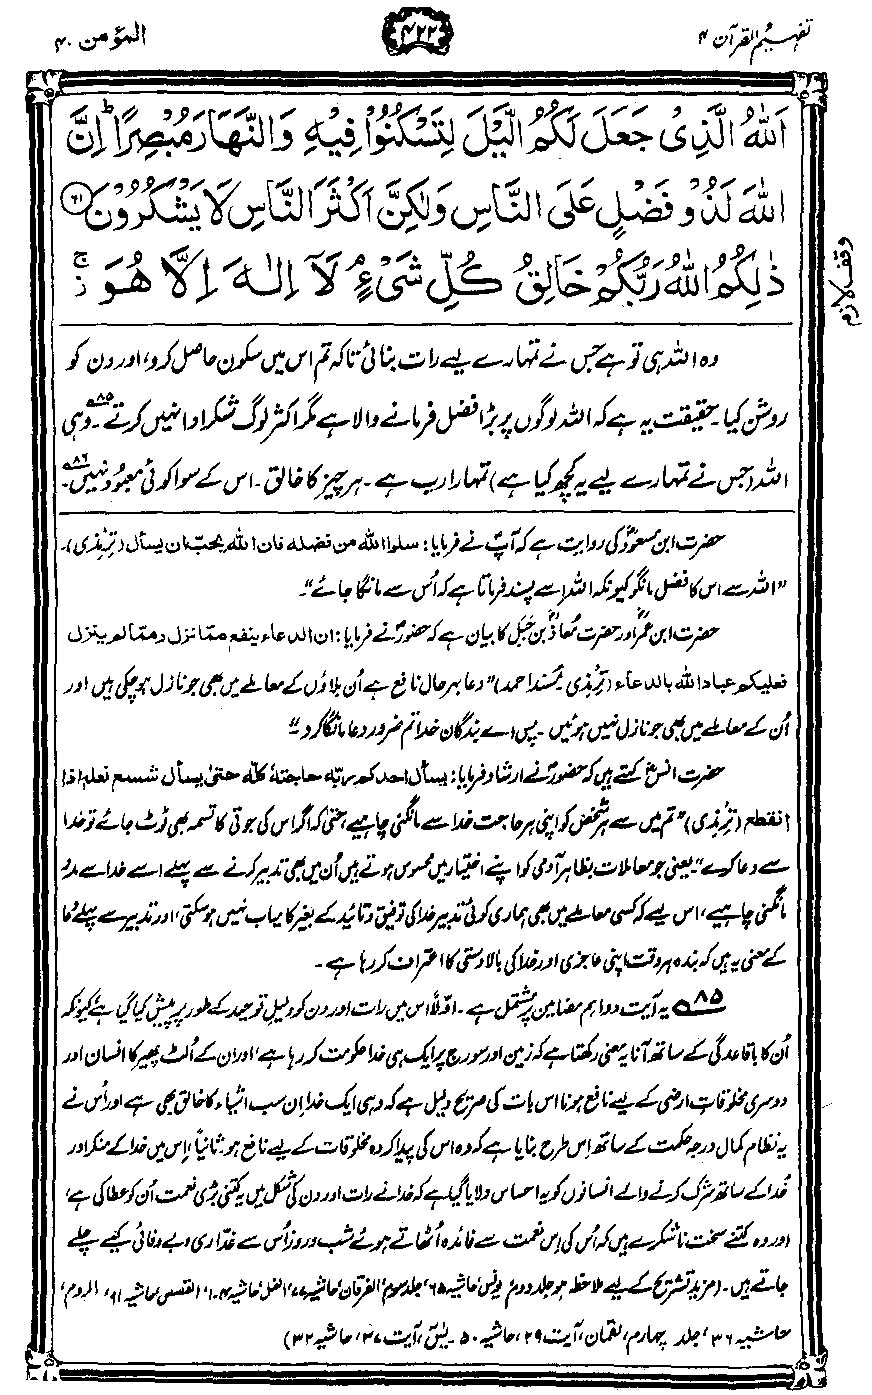 تفہیم القرآن ۴
۴۲۲
المؤمن ۴۰
اَللّٰهُ الَّذِیْ جَعَلَ لَكُمُ الَّیْلَ لِتَسْكُنُوْا فِیْهِ وَالنَّهَارَ مُبْصِرًا ؕ اِنَّ
اللّٰهَ لَذُوْ فَضْلٍ عَلَی النَّاسِ وَلٰكِنَّ اَكْثَرَ النَّاسِ لَا یَشْكُرُوْنَ ﴿۶۱﴾
ذٰلِكُمُ اللّٰهُ رَبُّكُمْ خَالِقُ كُلِّ شَیْءٍ ۘ لَاۤ اِلٰهَ اِلَّا هُوَ ۚ
وقف لازم
وہ اللہ ہی تو ہے جس نے تمہارے لیے رات بنائی تاکہ تم اس میں سکون حاصل کرو، اور دن کو
روشن کیا۔ حقیقت یہ ہے کہ اللہ لوگوں پر بڑا فضل فرمانے والا ہے مگر اکثر لوگ شکر ادا نہیں کرتے۔۸۵ وہی
اللہ (جس نے تمہارے لیے یہ کچھ کیا ہے) تمہارا رب ہے۔ ہر چیز کا خالق۔ اس کے سوا کوئی معبود نہیں۔۸۶
حضرت ابن مسعودؓ کی روایت ہے کہ آپؐ نے فرمایا: سلوا الله من فضله فان الله يحبّ ان يسأل (ترمذی)۔
"اللہ سے اس کا فضل مانگو کیونکہ اللہ اسے پسند فرماتا ہے کہ اُس سے مانگا جائے"۔
حضرت ابن عمرؓ اور حضرت مُعاذؓ بن جَبَل کا بیان ہے کہ حضورؐ نے فرمایا: ان الدعاء ينفع مما نزل و مما لم ينزل
فعليكم عباد الله بالدعاء (ترمذی، مسند احمد) "دعا بہرحال نافع ہے اُن بلاؤں کے معاملے میں بھی جو نازل ہو چکی ہیں اور
اُن کے معاملے میں بھی جو نازل نہیں ہوئیں۔ پس اے بندگان خدا تم ضرور دعا مانگا کرو"۔
حضرت انسؓ کہتے ہیں کہ حضورؐ نے ارشاد فرمایا: يسأل احدكم ربّه حاجته كلّه حتى يسأل شسع نعله اذا
انقطع (ترمذی) "تم میں سے ہر شخص کو اپنی ہر حاجت خدا سے مانگنی چاہیے، حتیٰ کہ اگر اس کی جوتی کا تسمہ بھی ٹوٹ جائے تو خدا
سے دعا کرے"۔ یعنی جو معاملات بظاہر آدمی کو اپنے اختیار میں محسوس ہوتے ہیں اُن میں بھی تدبیر کرنے سے پہلے اسے خدا سے مدد
مانگنی چاہیے، اس لیے کہ کسی معاملے میں بھی ہماری کوئی تدبیر خدا کی توفیق و تائید کے بغیر کامیاب نہیں ہو سکتی، اور تدبیر سے پہلے دُعا
کے معنی یہ ہیں کہ بندہ ہر وقت اپنی عاجزی اور خدا کی بالادستی کا اعتراف کر رہا ہے۔
۸۵ یہ آیت دو اہم مضامین پر مشتمل ہے۔ اوّلاً اس میں رات اور دن کو دلیلِ توحید کے طور پر پیش کیا گیا ہے، کیونکہ
اُن کا باقاعدگی کے ساتھ آنا یہ معنی رکھتا ہے کہ زمین اور سورج پر ایک ہی خدا حکومت کر رہا ہے، اور ان کے اُلٹ پھیر کا انسان اور
دوسری مخلوقاتِ ارضی کے لیے نافع ہونا اس بات کی صریح دلیل ہے کہ وہی ایک خدا اِن سب اشیاء کا خالق بھی ہے اور اُس نے
یہ نظام کمال درجہ حکمت کے ساتھ اِس طرح بنایا ہے کہ وہ اس کی پیدا کردہ مخلوقات کے لیے نافع ہو۔ ثانیاً، اِس میں خدا کے منکر اور
خُدا کے ساتھ شرک کرنے والے انسانوں کو یہ احساس دلایا گیا ہے کہ خدا نے رات اور دن کی شکل میں یہ کتنی بڑی نعمت اُن کو عطا کی ہے،
اور وہ کتنے سخت ناشکرے ہیں کہ اُس کی اِس نعمت سے فائدہ اُٹھاتے ہوئے شب و روز اُس سے غدّاری و بے وفائی کیے چلے
جاتے ہیں۔ (مزید تشریح کے لیے ملاحظہ ہو جلد دوم یونس، حاشیہ ۶۵، جلد سوم، الفرقان، حاشیہ ۷۷، النمل، حاشیہ ۱۰۴، القصص، حاشیہ ۹۱، الروم،
حاشیہ ۳۶، جلد چہارم، لقمان، آیت ۲۹، حاشیہ ۵۰۔ یٰسٓ، آیت ۳۷، حاشیہ ۳۲)